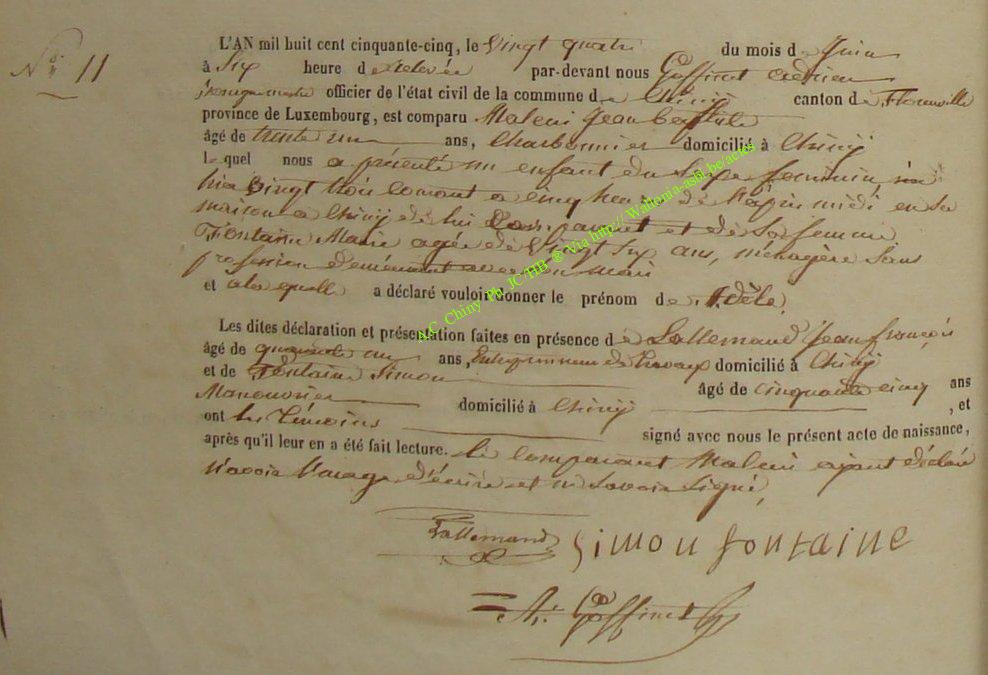 No 11
L'AN mil huit cent cinquante-cinq, le Vingt quatre du mois de Juin
à Six heure de relevée par-devant nous Goffinet Adrien
Bourguemestre officier de l'état civil de la commune de Chiny canton de Florenville
province de Luxembourg, est comparu Jean baptiste
âgé de trente un ans, Charbonnier domicilié à Chiny
lequel nous a présenté un enfant du Sexe feminin, née
hier Vingt trois courant a cinq heures de l'après midi en sa
maison a Chiny de lui Comparant et de Son femme
Fontaine Marie agée de Vingt Six ans, ménagère Sans
profession demeurant avec son mari
et a laquelle a déclaré vouloir donner le prénom de Adèle,
Les dites déclaration et présentation faites en présence de Lallemand Jean françois
âgé de quarante un ans, Entrepreneur de travaux domicilié à Chiny
et de Fontaine Simon âgé de cinquante cinq ans
Manouvrier domicilié à Chiny , et
ont les Témoins signé avec nous le présent acte de naissance,
après qu'il leur en a été fait lecture. le comparant ayant déclaré
n'avoir l'usage d'écrire et ne Savoir Signé,
Lallemand Simon fontaine
A. Goffinet
A.C. Chiny Ph. JC/HB @ Via http:// Wallonia-asbl.be/actes